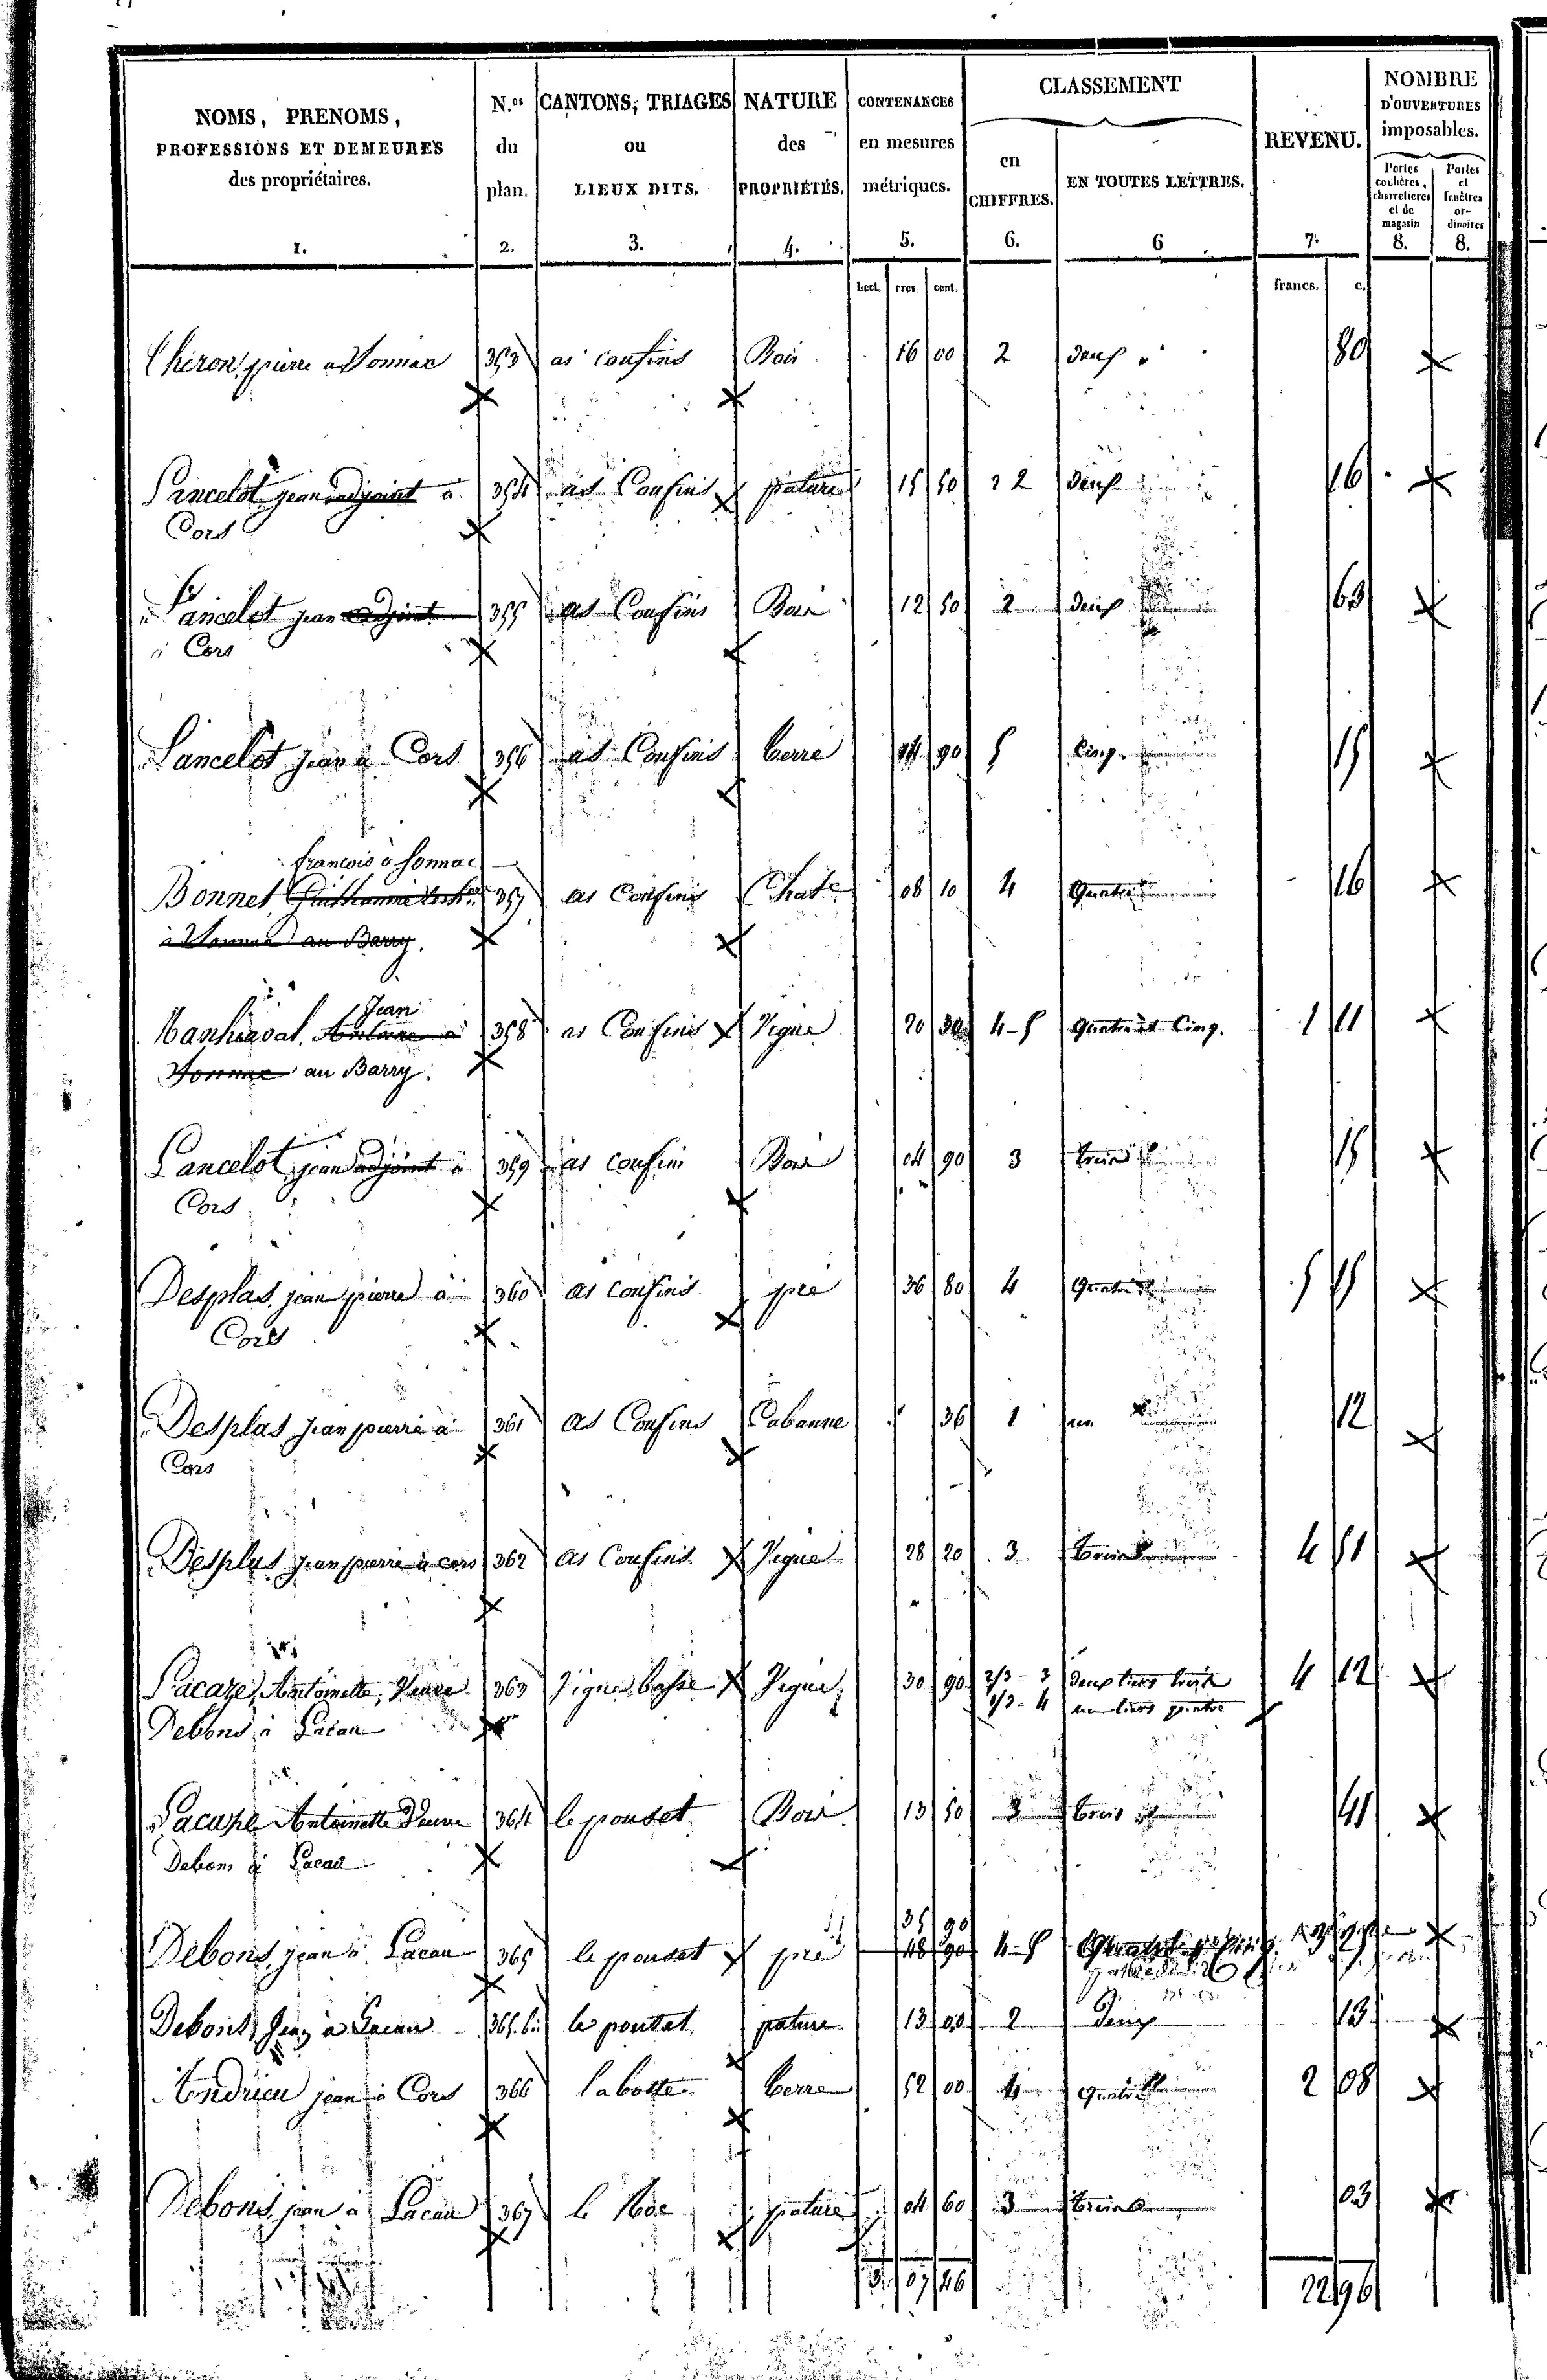 NOMS, PRENOMS, PROFESSIONS ET DEMEURES des propriétaires. 1.
N.os du plan. 2.
CANTONS, TRIAGES ou LIEUX DITS. 3.
NATURE des PROPRIÉTÉS. 4.
CONTENANCES en mesures métriques. 5.
CLASSEMENT
en CHIFFRES. 6.
EN TOUTES LETTRES. 6
REVENU. 7.
NOMBRE D'OUVERTURES imposables.
Portes cochères, charretieres et de magasin 8.
Portes et fenêtres ordinaires 8.
hect. ares cent. francs. c.
Cheron pierre a Vonnac 353 as confins Bois 16 00 2 deux 80
Lancelot jean adjoint a 354 as Confins pature 15 50 2 deux 16
Cors
Lancelot jean adjoint 355 as Confins Bois 12 50 2 deux 63
a Cors
Lancelot jean a Cors 356 as Confins terre 04 90 5 Cinq 15
francois a sonnac
Bonnet 357 as Confins Chate 08 10 4 Quatre 16
au Barry.
Jean
Manhiaval Antoine a 358 as Confins Vigne 20 30 4-5 Quatre et Cinq. 1 11
au Barry.
Lancelot jean adjoint a 359 as confins Bois 04 90 3 trois 15
Cors
Desplas jean pierre a 360 as confins pre 36 80 4 Quatre 5
Cors
Desplas jean pierre a 361 as Confins Cabanne 36 1 un 12
Cors
Desplas jean pierre a cors 362 as Confins Vigne 28 20 3 trois 4 51
Lacaze, Antoinette, Veuve 363 Vigne basse Vigne 30 90 2/3 - 3 deux tiers trois 4 12
Debons a Lacau 1/3 - 4 un tiers quatre
Lacaze Antoinette Veuve 364 le pouset Bois 13 50 3 trois 41
Debons a Lacau
35 90
Debons jean a Lacau 365 le pouset pré 48 90 4-5
Debons jean a Lacau 365.bis le pouset pature 13 00 2 deux 13
Andrieu jean a Cors 366 labotte terre 52 00 4 quatre 2 08
Debons jean a Lacau 367 pature 04 60 3 trois 03
3 07 46 22 96